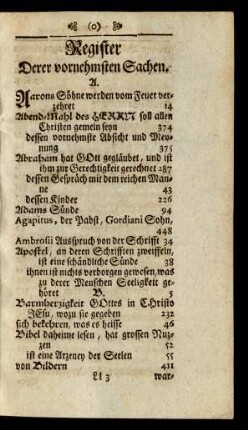 (0)
Register
Derer vornehmsten Sachen.
A.
Aarons Söhne werden vom Feuer ver-
zehret 14
Abend-Mahl des HERRN soll allen
Christen gemein seyn 374
dessen vornehmste Absicht und Mey-
nung 375
Abraham hat GOtt gegläubet, und ist
ihm zur Gerechtigkeit gerechnet 287
dessen Gespräch mit dem reichen Man-
ne 43
dessen Kinder 226
Adams Sünde 94
Agapitus, der Pabst, Gordiani Sohn,
448
Ambrosii Ausspruch von der Schrift 34
Apostel, an deren Schrifften zweiffeln,
ist eine schändliche Sünde 38
ihnen ist nichts verborgen gewesen, was
zu derer Menschen Seeligkeit ge-
höret 5
B.
Barmherzigkeit GOttes in CHristo
JEsu, wozu sie gegeben 232
sich bekehren, was es heisse 46
Bibel daheime lesen, hat grossen Nu-
zen 52
ist eine Arzeney der Seelen 55
von Bildern 411
Ll 3
war-